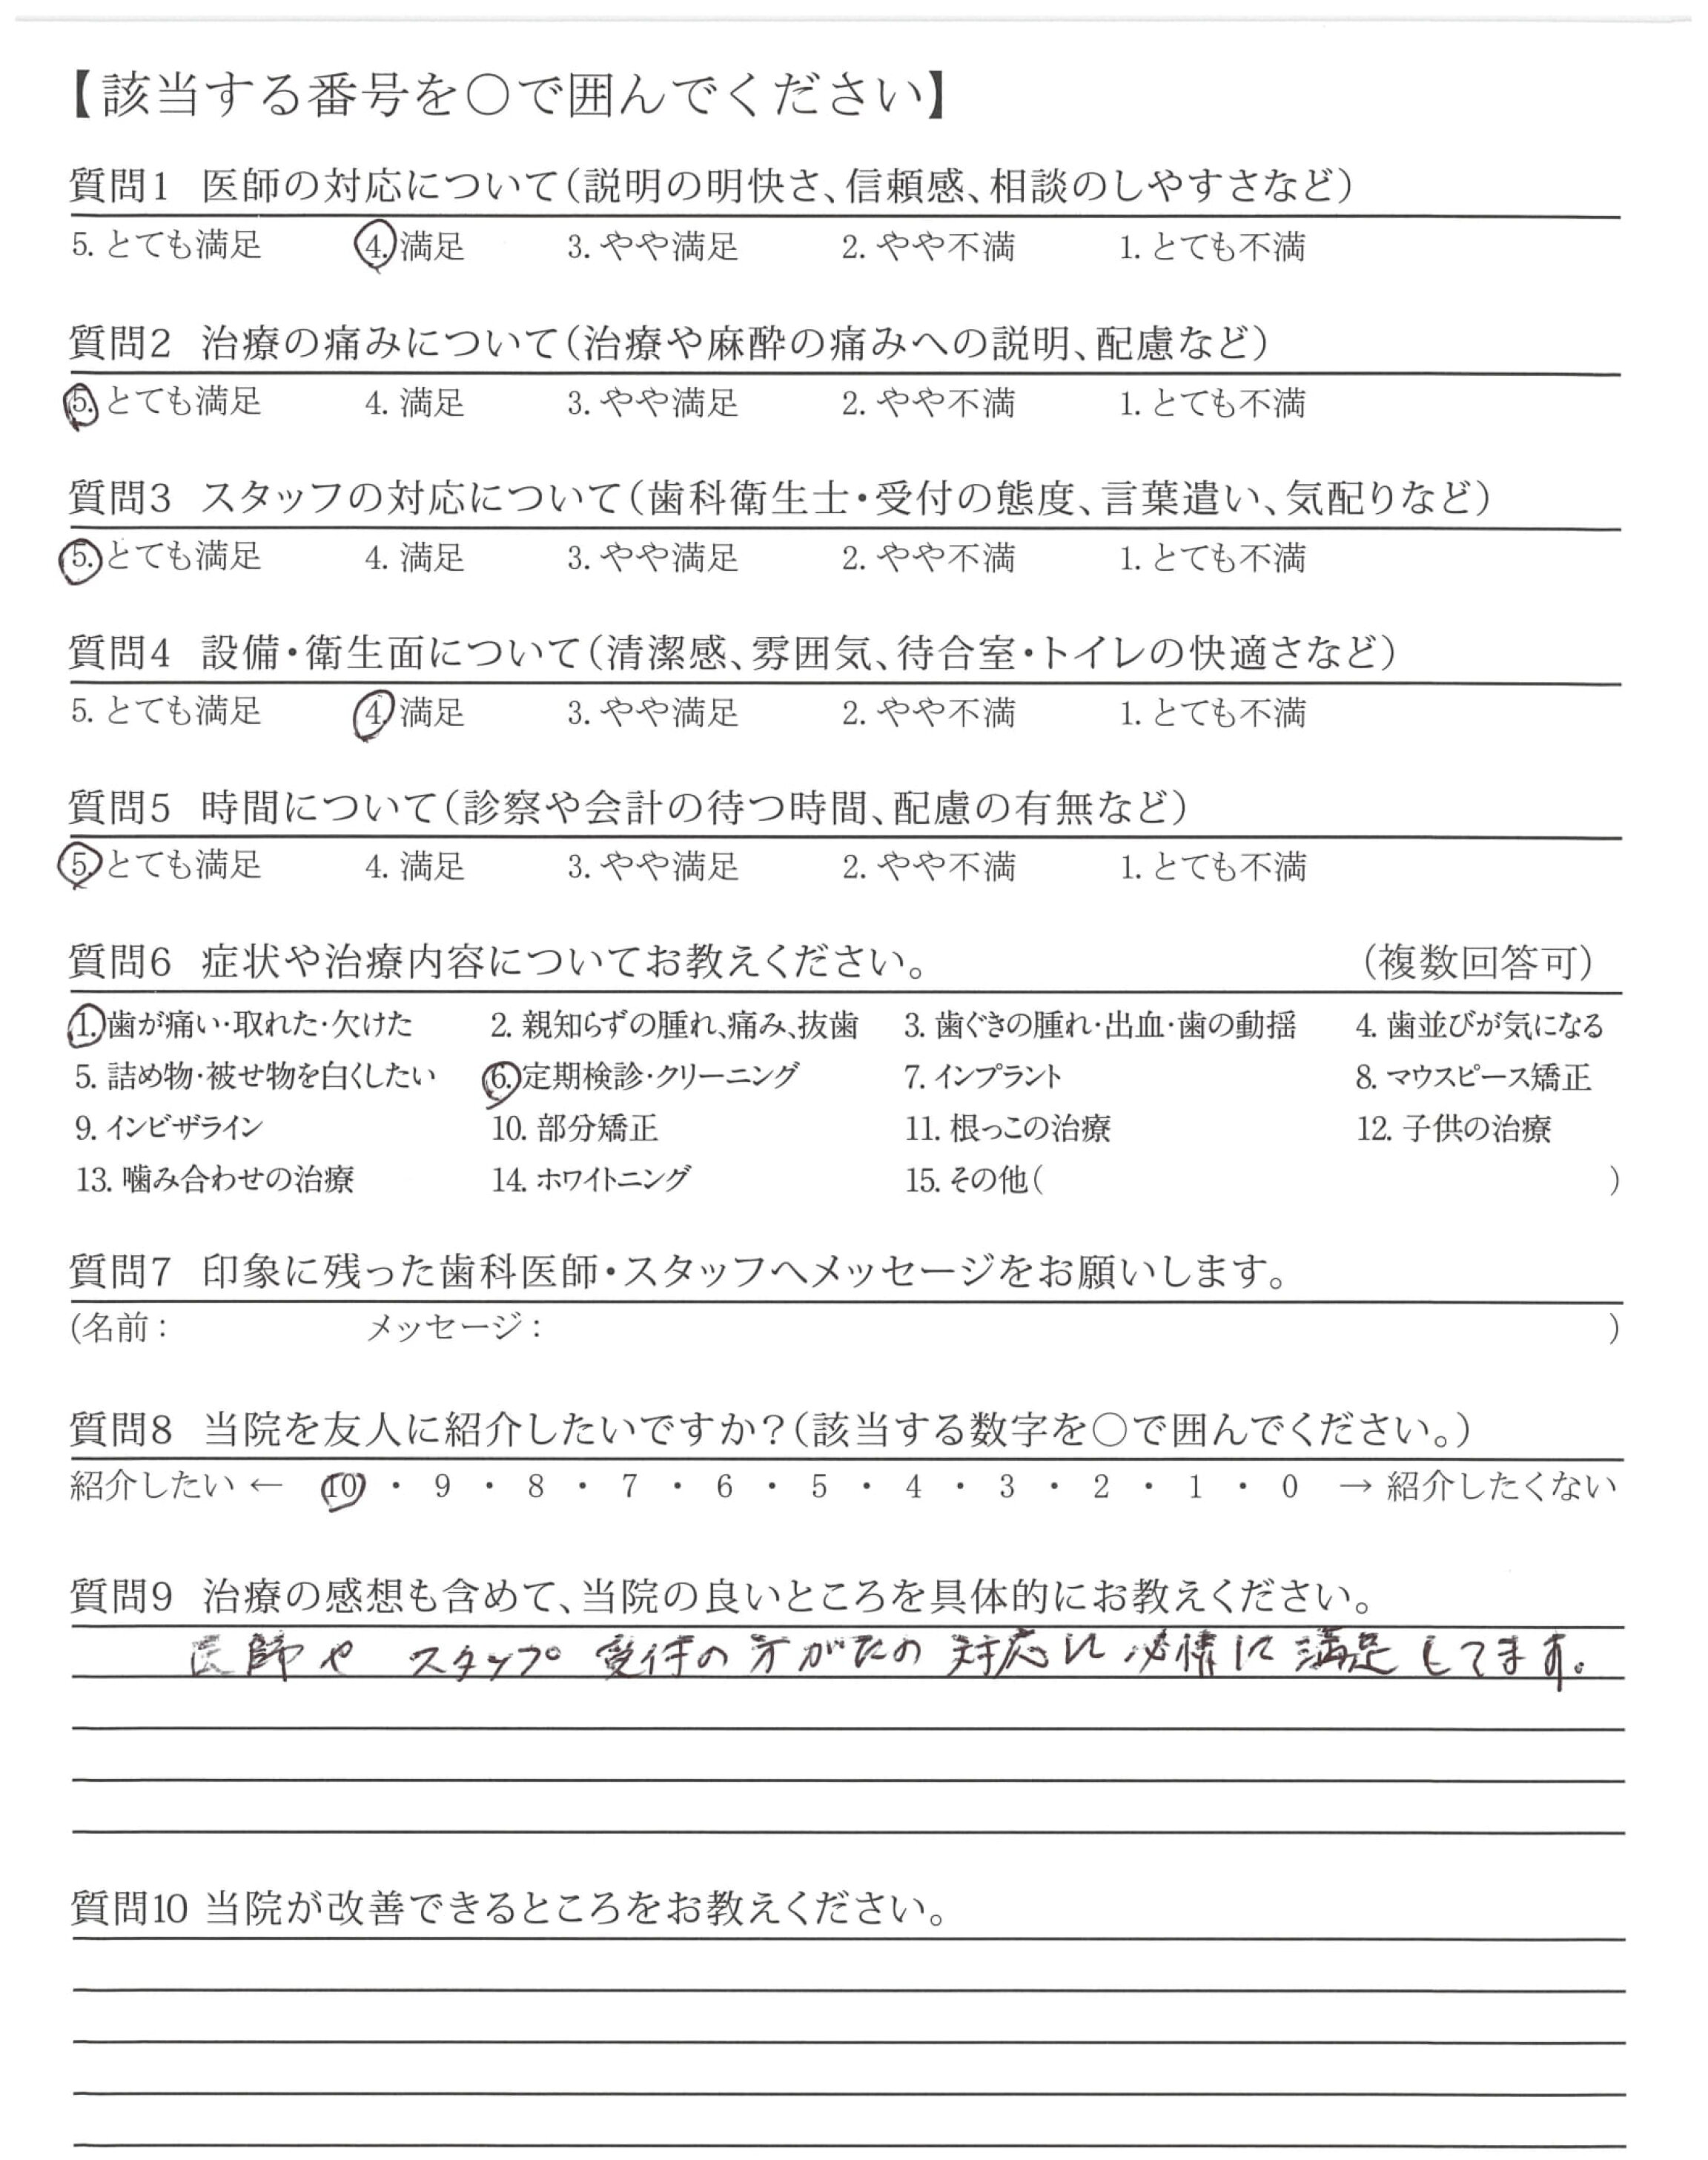 【該当する番号を○で囲んでください】
質問1 医師の対応について(説明の明快さ、信頼感、相談のしやすさなど)
5. とても満足 4. 満足 3. やや満足 2. やや不満 1. とても不満
質問2 治療の痛みについて(治療や麻酔の痛みへの説明、配慮など)
5. とても満足 4. 満足 3. やや満足 2. やや不満 1. とても不満
質問3 スタッフの対応について(歯科衛生士・受付の態度、言葉遣い、気配りなど)
5. とても満足 4. 満足 3. やや満足 2. やや不満 1. とても不満
質問4 設備・衛生面について(清潔感、雰囲気、待合室・トイレの快適さなど)
5. とても満足 4. 満足 3. やや満足 2. やや不満 1. とても不満
質問5 時間について(診察や会計の待つ時間、配慮の有無など)
5. とても満足 4. 満足 3. やや満足 2. やや不満 1. とても不満
質問6 症状や治療内容についてお教えください。 (複数回答可)
1. 歯が痛い・取れた・欠けた 2. 親知らずの腫れ、痛み、抜歯 3. 歯ぐきの腫れ・出血・歯の動揺 4. 歯並びが気になる
5. 詰め物・被せ物を白くしたい 6. 定期検診・クリーニング 7. インプラント 8. マウスピース矯正
9. インビザライン 10. 部分矯正 11. 根っこの治療 12. 子供の治療
13. 噛み合わせの治療 14. ホワイトニング 15. その他( )
質問7 印象に残った歯科医師・スタッフへメッセージをお願いします。
(名前: メッセージ: )
質問8 当院を友人に紹介したいですか?(該当する数字を○で囲んでください。)
紹介したい ← 10 ・ 9 ・ 8 ・ 7 ・ 6 ・ 5 ・ 4 ・ 3 ・ 2 ・ 1 ・ 0 → 紹介したくない
質問9 治療の感想も含めて、当院の良いところを具体的にお教えください。
医師や スタップ 受付の方がたの 対応に に 満足してます。
質問10 当院が改善できるところをお教えください。